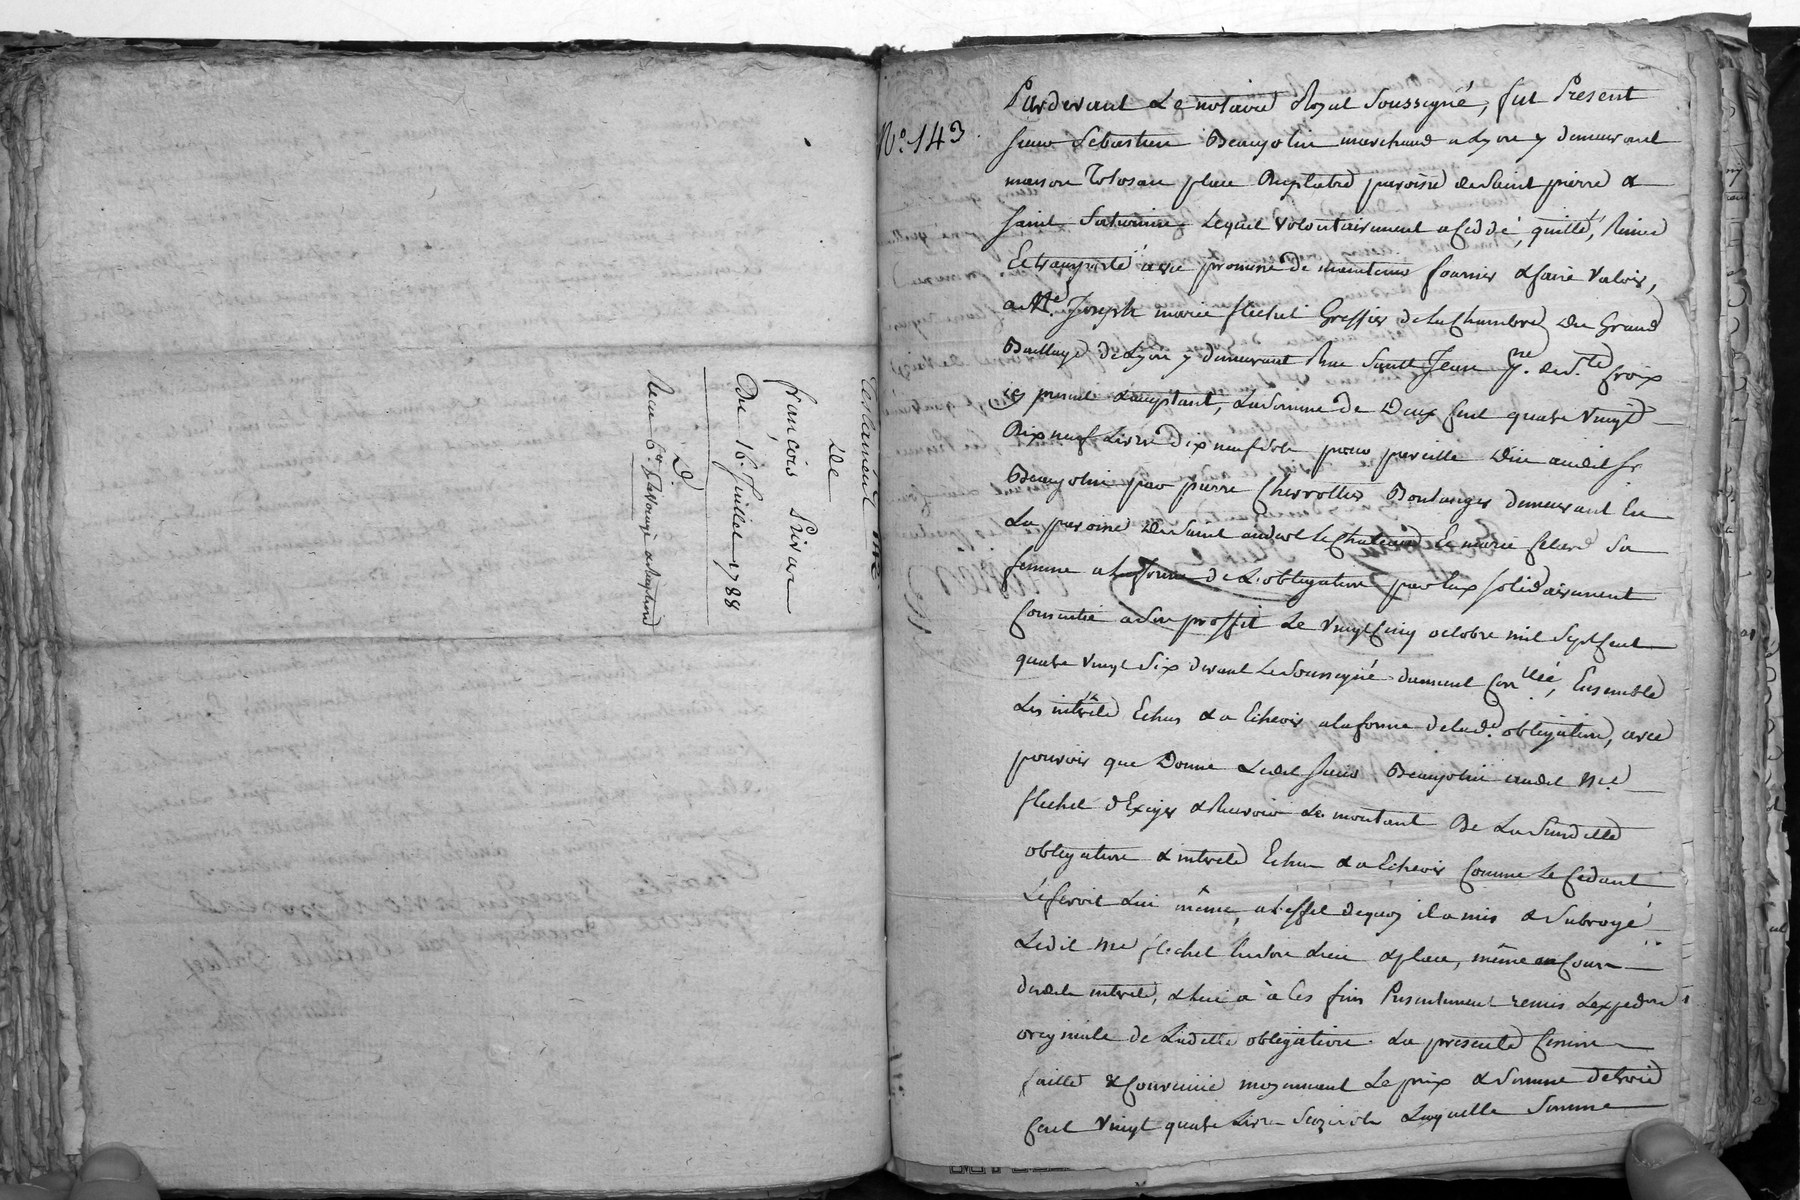 Testament
De
françois Pivar
Du 16. Juillet 1788
N.° 143
Pardevant Le notaire Royal Soussigné, fut Present
Sieur Sébastien Beaujolin marchand a Lyon y demeurant
maison Tolosan place Duplatre paroisse de Saint pierre &
Saint Saturnin Lequel volontairement a Ceddé, quitté, Remis
Et transporté avec promesse De maintenir fournir & faire Valoir,
a Me. Joseph marie flechet Greffier de La Chambre Du Grand
Baillage de Lyon y demeurant Rue Saint Jean psse. de Ste Croix
icy present & acceptant, La Somme De Deux Cent quatre Vingt
Dix neuf Livres Dix neuf Sols pour pareille Due audit Sr.
Beaujolin par pierre Boulanger demeurant En
La paroisse De Saint andeol Le Chateau & marie Sa
femme a La forme de L'obligation par Eux Solidairement
Consentie a Son proffit Le Vingt Cinq octobre mil Sept Cent
quatre Vingt Six devant Le Soussigné duement Conllée, Ensemble
Les intérêts Echus & a Echeoir a la forme de lad.e obligation, avec
pouvoir que Donne Ledit Sieur Beaujolin audit Me.
flechet d'Exiger & Recevoir Le montant De La Susditte
obligation & intérêts Echus & a Echeoir Comme Le Cédant
Le feroit Lui même, a L'effet de quoy il a mis & Subrogé
Ledit Me flechet En Son Lieu & place, même au Cours
desdits intérêts, & lui a à Ces fins Presentement remis L'expedon
originale de Laditte obligation. La présente Cession
faitte & Convenue moyennant Le prix & Somme de trois
Cent Vingt quatre Livres Seize Sols Laquelle Somme